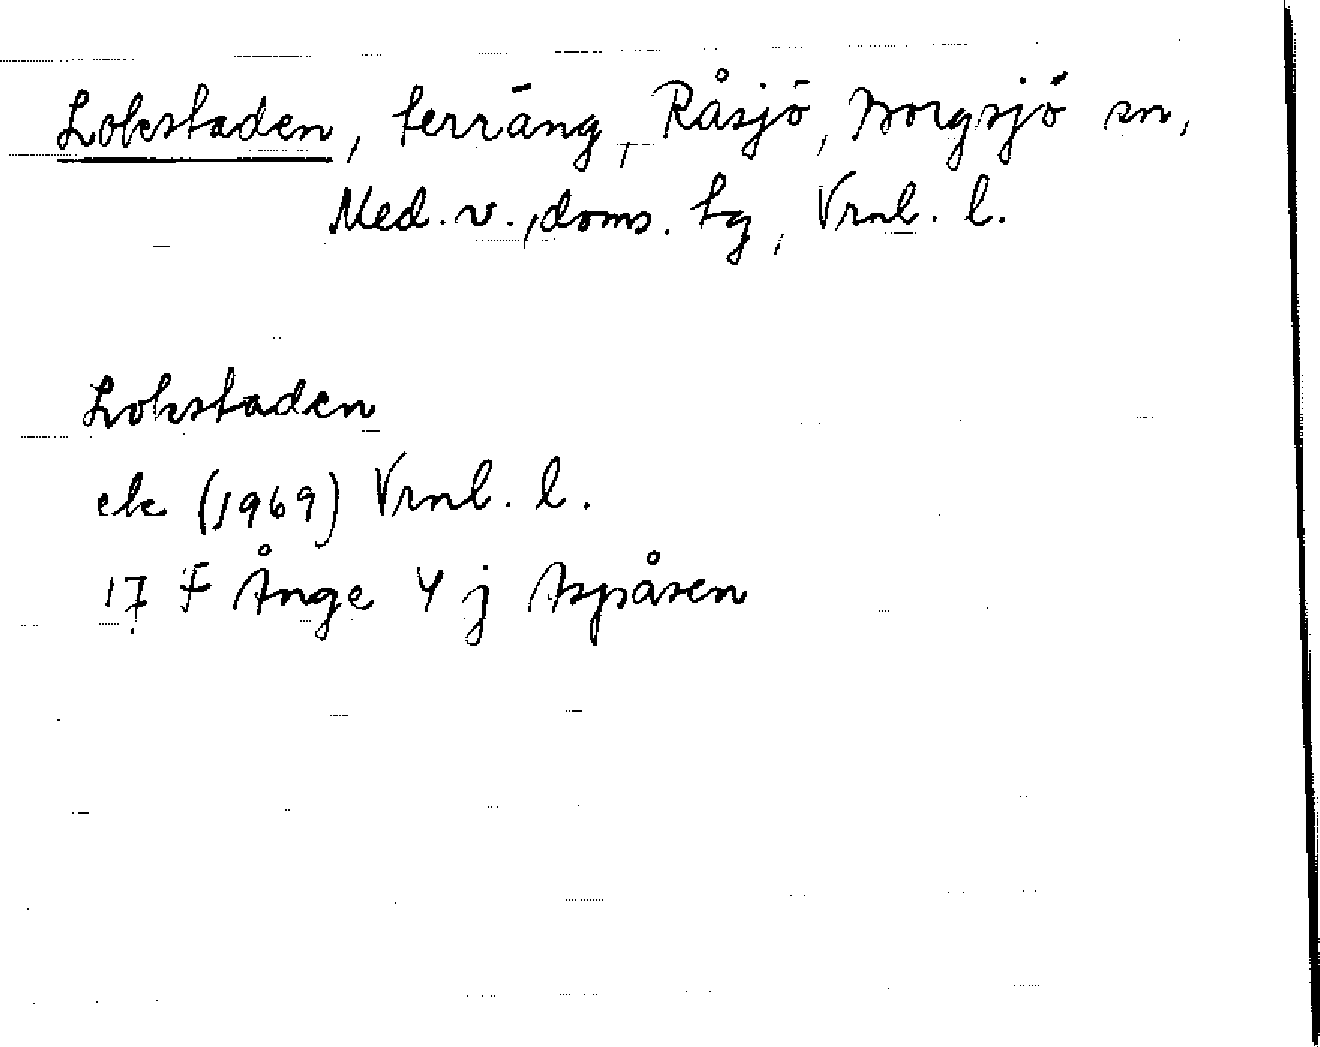 Lokstaden, terräng, Råsjö, Borgsjö sn,
Med. v., doms. tg, Vrnl. l.
Lokstaden
ek (1969) Vrnl. l.
17 F Ånge 4 j Aspåsen